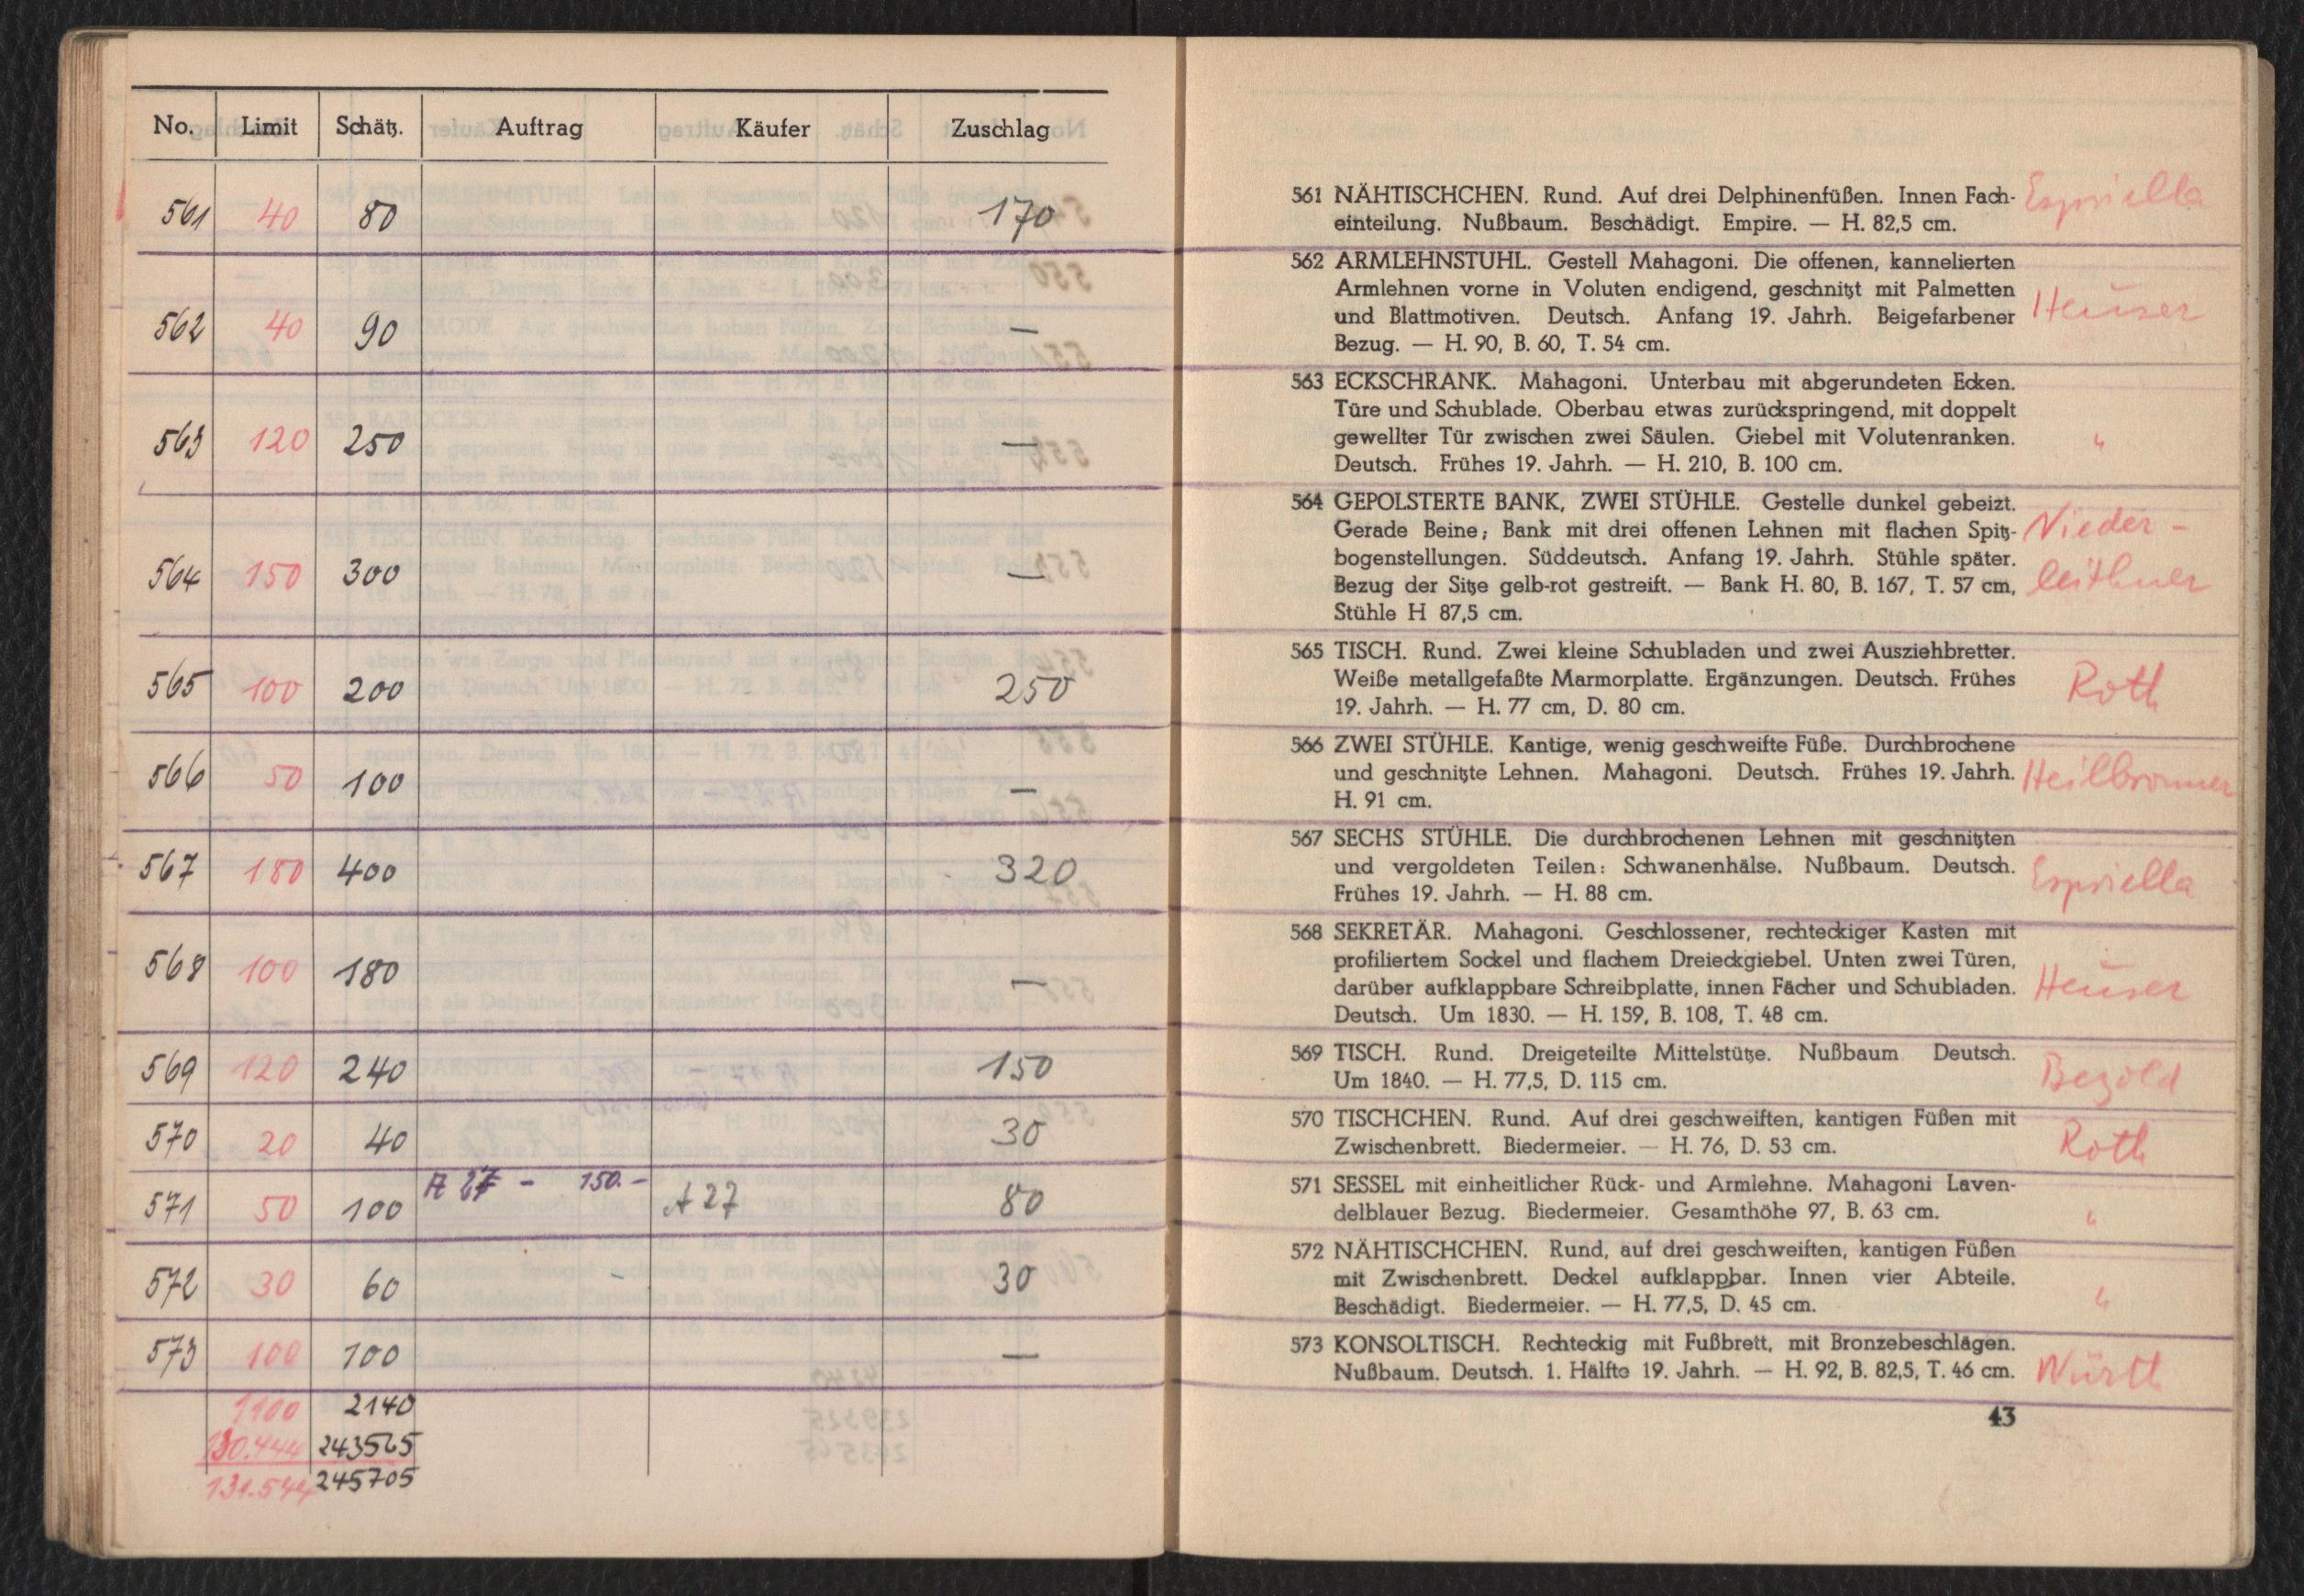 No. Limit Schätz. Auftrag Käufer Zuschlag
561 40 80 170
562 40 90 —
563 120 250 —
564 150 300 —
565 100 200 250
566 50 100 —
567 180 400 320
568 100 180 —
569 120 240 150
570 20 40 30
A 27 - 150.-
571 50 100 A 27 80
572 30 60 30
573 100 100 —
1100 2140
130.444 243565
131.544 245705
561 NÄHTISCHCHEN. Rund. Auf drei Delphinenfüßen. Innen Fach-
einteilung. Nußbaum. Beschädigt. Empire. — H. 82,5 cm.
Espriella
562 ARMLEHNSTUHL. Gestell Mahagoni. Die offenen, kannelierten
Armlehnen vorne in Voluten endigend, geschnitzt mit Palmetten
und Blattmotiven. Deutsch. Anfang 19. Jahrh. Beigefarbener
Bezug. — H. 90, B. 60, T. 54 cm.
Heuser
563 ECKSCHRANK. Mahagoni. Unterbau mit abgerundeten Ecken.
Türe und Schublade. Oberbau etwas zurückspringend, mit doppelt
gewellter Tür zwischen zwei Säulen. Giebel mit Volutenranken.
Deutsch. Frühes 19. Jahrh. — H. 210, B. 100 cm.
"
564 GEPOLSTERTE BANK, ZWEI STÜHLE. Gestelle dunkel gebeizt.
Gerade Beine; Bank mit drei offenen Lehnen mit flachen Spitz-
bogenstellungen. Süddeutsch. Anfang 19. Jahrh. Stühle später.
Bezug der Sitze gelb-rot gestreift. — Bank H. 80, B. 167, T. 57 cm,
Stühle H 87,5 cm.
Nieder-
leithner
565 TISCH. Rund. Zwei kleine Schubladen und zwei Ausziehbretter.
Weiße metallgefaßte Marmorplatte. Ergänzungen. Deutsch. Frühes
19. Jahrh. — H. 77 cm, D. 80 cm.
Roth
566 ZWEI STÜHLE. Kantige, wenig geschweifte Füße. Durchbrochene
und geschnitzte Lehnen. Mahagoni. Deutsch. Frühes 19. Jahrh.
H. 91 cm.
Heilbronner
567 SECHS STÜHLE. Die durchbrochenen Lehnen mit geschnitzten
und vergoldeten Teilen: Schwanenhälse. Nußbaum. Deutsch.
Frühes 19. Jahrh. — H. 88 cm.
Espriella
568 SEKRETÄR. Mahagoni. Geschlossener, rechteckiger Kasten mit
profiliertem Sockel und flachem Dreieckgiebel. Unten zwei Türen,
darüber aufklappbare Schreibplatte, innen Fächer und Schubladen.
Deutsch. Um 1830. — H. 159, B. 108, T. 48 cm.
Heuser
569 TISCH. Rund. Dreigeteilte Mittelstütze. Nußbaum Deutsch.
Um 1840. — H. 77,5, D. 115 cm.
Bezold
570 TISCHCHEN. Rund. Auf drei geschweiften, kantigen Füßen mit
Zwischenbrett. Biedermeier. — H. 76, D. 53 cm.
Roth
571 SESSEL mit einheitlicher Rück- und Armlehne. Mahagoni Laven-
delblauer Bezug. Biedermeier. Gesamthöhe 97, B. 63 cm.
"
572 NÄHTISCHCHEN. Rund, auf drei geschweiften, kantigen Füßen
mit Zwischenbrett. Deckel aufklappbar. Innen vier Abteile.
Beschädigt. Biedermeier. — H. 77,5, D. 45 cm.
"
573 KONSOLTISCH. Rechteckig mit Fußbrett, mit Bronzebeschlägen.
Nußbaum. Deutsch. 1. Hälfte 19. Jahrh. — H. 92, B. 82,5, T. 46 cm.
Württ
43